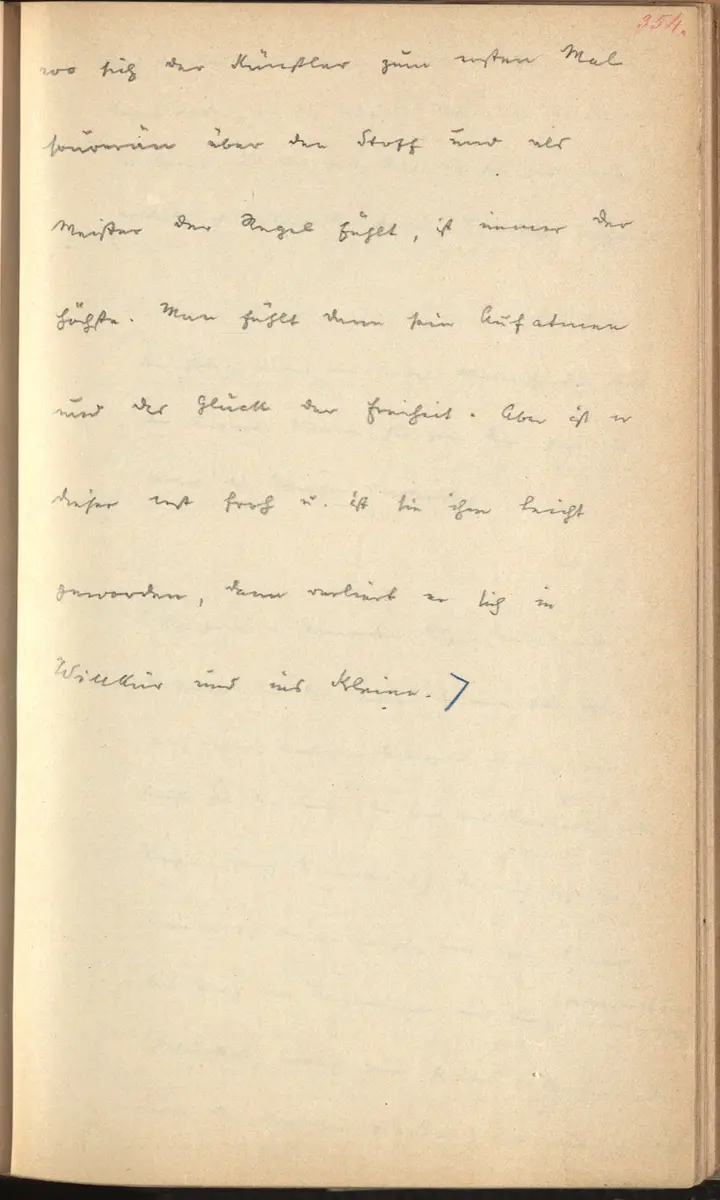 354.
wo sich der Künstler zum ersten Mal
souverän über den Stoff und als
Meister der Regel fühlt, ist immer der
höchste. Man fühlt dann sein Aufatmen
und das Glück der Freiheit. Aber ist er
dieser erst froh u. ist sie ihm leicht
geworden, dann verliert er sich in
Willkür und ins Kleine.